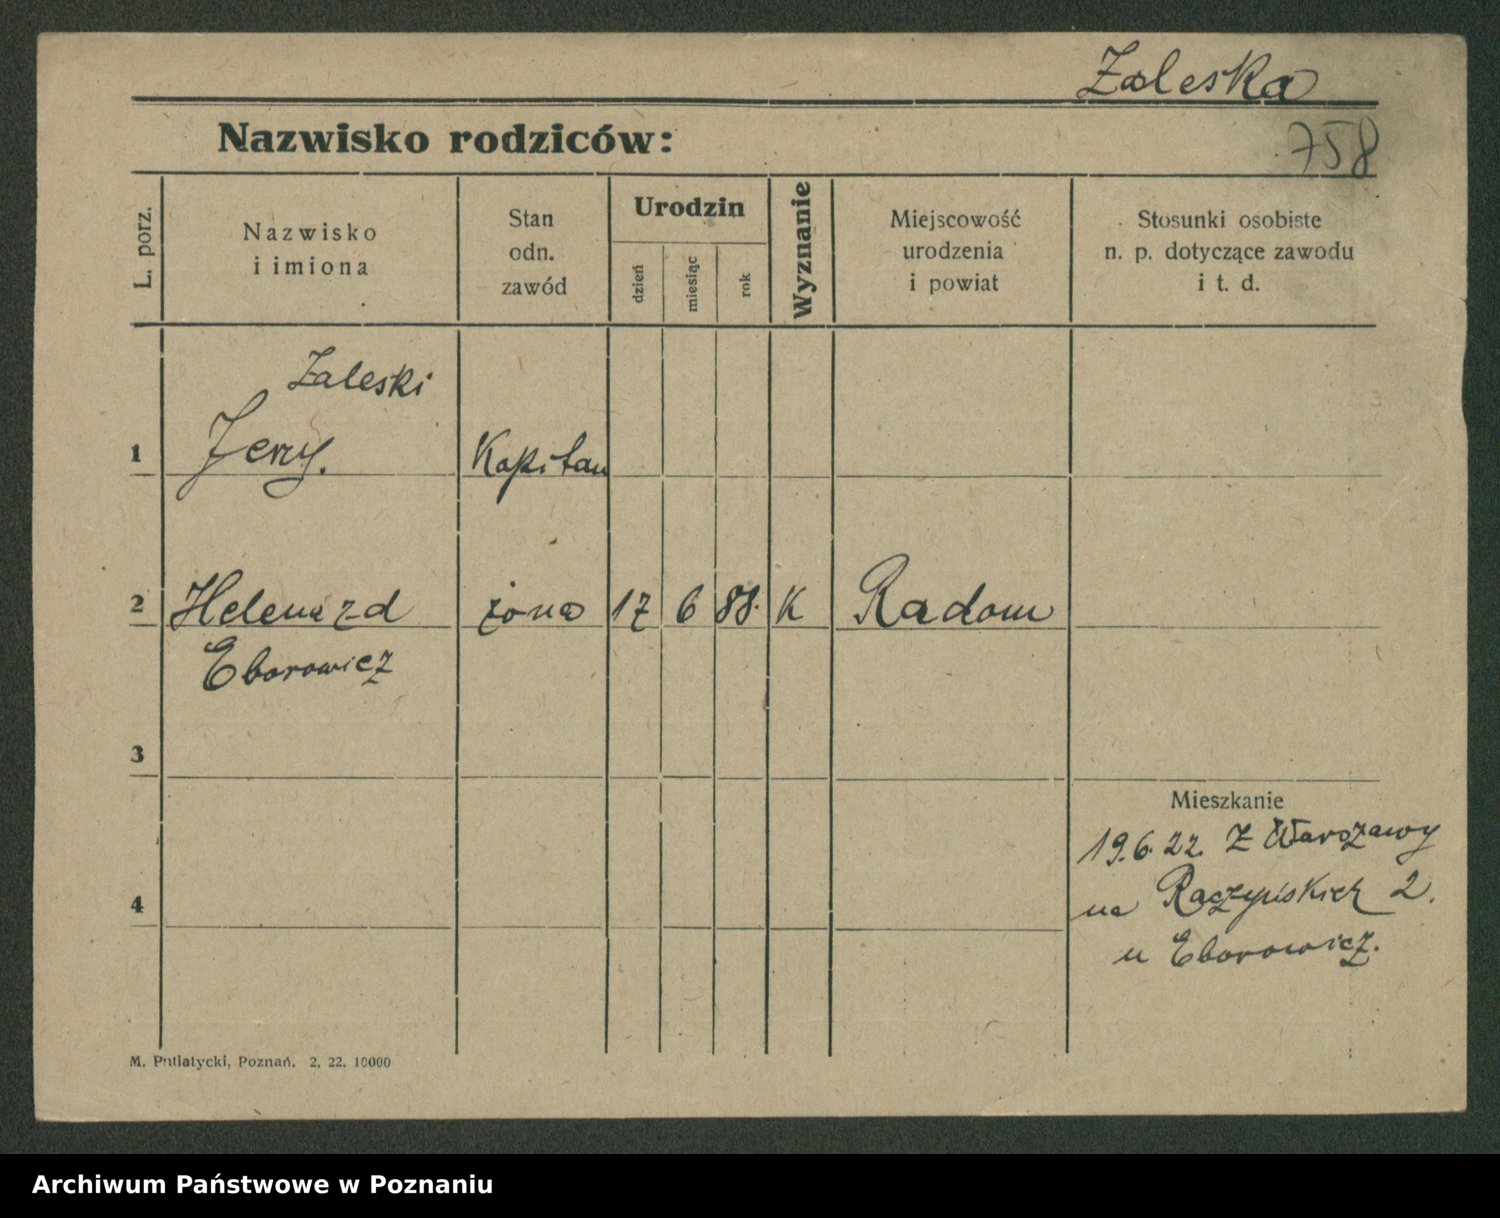 Zaleska
Nazwisko rodziców:
758
L. porz.
Nazwisko
i imiona
Stan
odn.
zawód
Urodzin
dzień
miesiąc
rok
Wyznanie
Miejscowość
urodzenia
i powiat
Stosunki osobiste
n. p. dotyczące zawodu
i t. d.
Zaleski
1 Jerzy. Kapitan
2 Helena zd żona 17 6 88. K Radom
Eborowicz
3
Mieszkanie
19.6.22. Z Warszawy
4 na Raczyńskich 2.
u Eborowicz.
M. Putiatycki, Poznań. 2. 22. 10000
Archiwum Państwowe w Poznaniu